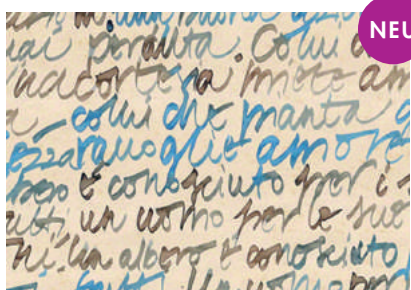 NEU
una buona
mai perduta. Colui
cortesia miete am
colui che pianta
ezza raccoglie amore
bero è conosciuto per i s
utti un uomo per le sue
ni. Un albero è conosciuto
Un uomo per